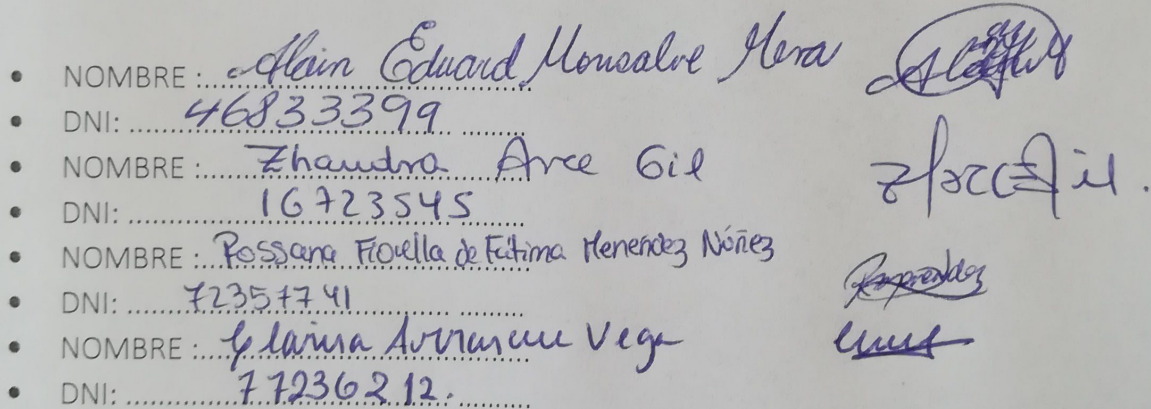 • NOMBRE : Alain Eduard Monsalve Mera
• DNI: 46833399
• NOMBRE : Zhandra Arce Gil
• DNI: 16723545
• NOMBRE : Rossana Fiorella de Fátima Menéndez Núñez
• DNI: 72357741
• NOMBRE : Vega
• DNI: 77236212.